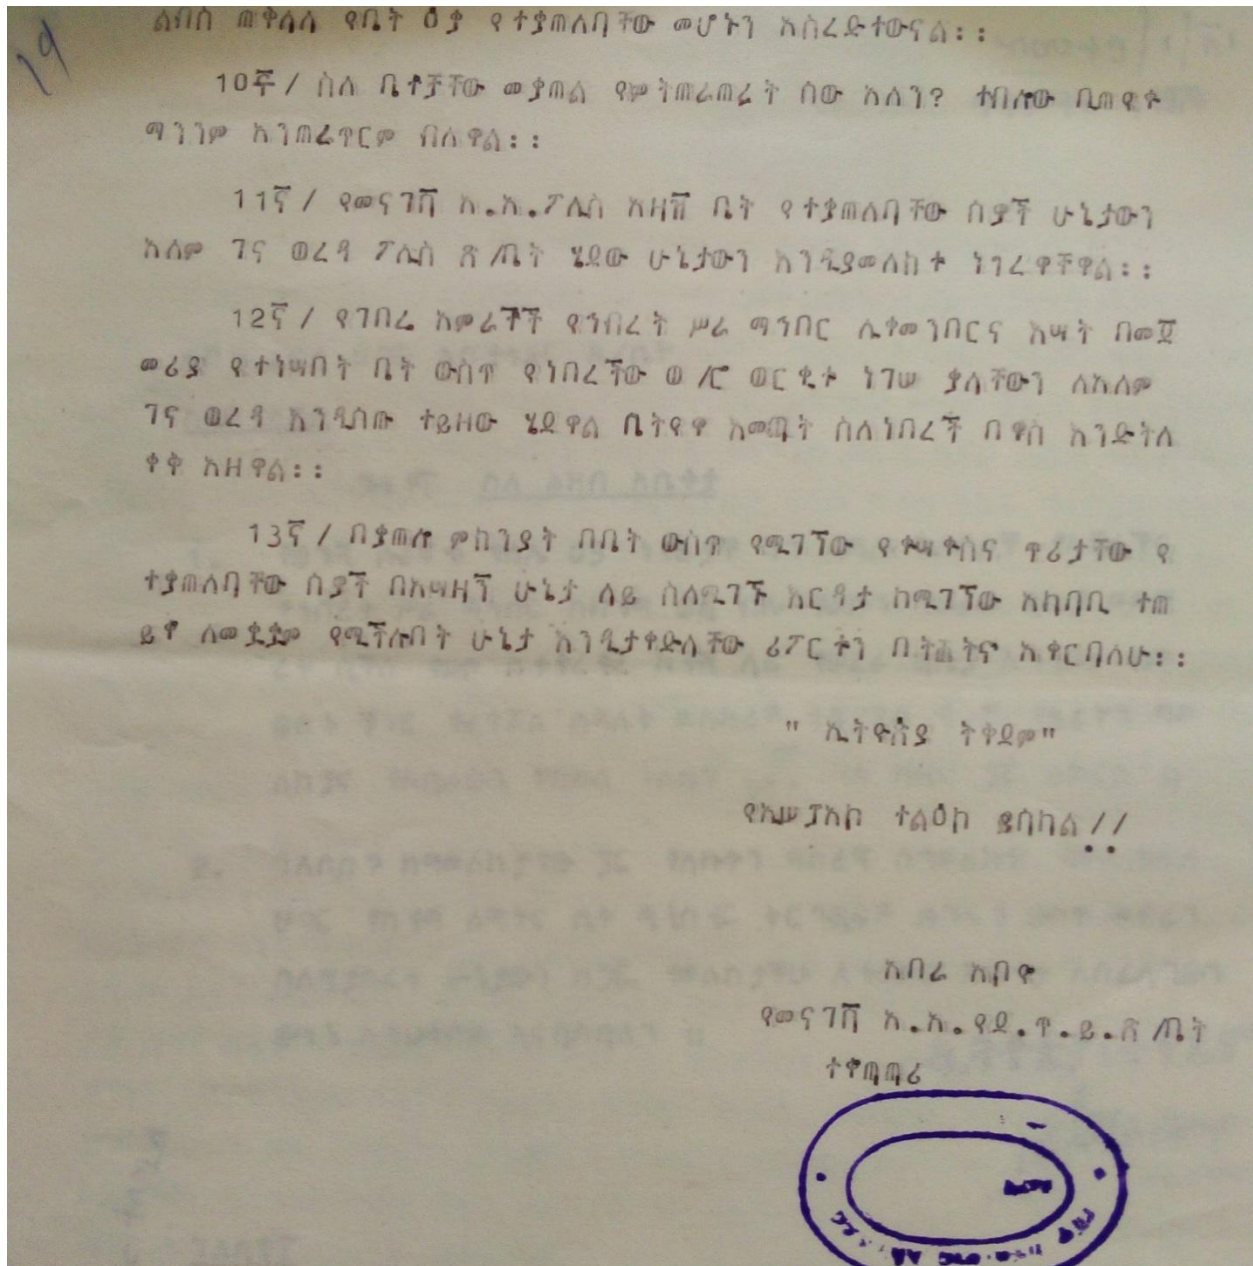 19
ልብስ ጠቅላላ የቤት ዕቃ የተቃጠለባቸው መሆኑን አስረድተውናል፡፡
10ኛ/ ስለ ቤቶቻቸው መቃጠል የምትጠራጠሩት ሰው አለን? ተብሎው ቢጠየቁ
ማንንም አንጠረጥርም ብለዋል፡፡
11ኛ/ የመናገሻ አ.አ.ፖሊስ አዛዥ ቤት የተቃጠለባቸው ሰዎች ሁኔታውን
አለም ገና ወረዳ ፖሊስ ጽ/ቤት ሄደው ሁኔታውን እንዲያመለክቱ ነገረዋቸዋል፡፡
12ኛ/ የገበሬ አምራቾች የኅብረት ሥራ ማኅበር ሊቀመንበርና እሣት በመጀ
መሪያ የተነሣበት ቤት ውስጥ የነበረችው ወ/ሮ ወርቂቱ ነገሠ ያላቸውን ለአለም
ገና ወረዳ እንዲሰጡ ተይዘው ሄደዋል ሴትዮዋ አመጫት ስለነበረች በዋስ እንድትለ
ቀቅ አዘዋል፡፡
13ኛ/ በቃጠሎ ምክንያት በቤት ውስጥ የሚገኘው የቁሣቁስና ጥሪታቸው የ
ተቃጠለባቸው ሰዎች በአሣዛኝ ሁኔታ ላይ ስለሚገኙ እርዳታ ከሚገኘው አካባቢ ተጠ
ይቆ ለመቋቋም የሚችሉበት ሁኔታ እንዲታቀድላቸው ሪፖርቱን በትሕትና አቀርባለሁ፡፡
" ኢትዮጵያ ትቅደም"
የኢሠፓአኮ ተልዕኮ ይሳካል!!
አበራ አቦዬ
የመናገሻ አ.አ.የደ.ጥ.ይ.ጽ/ቤት
ተቆጣጣሪ